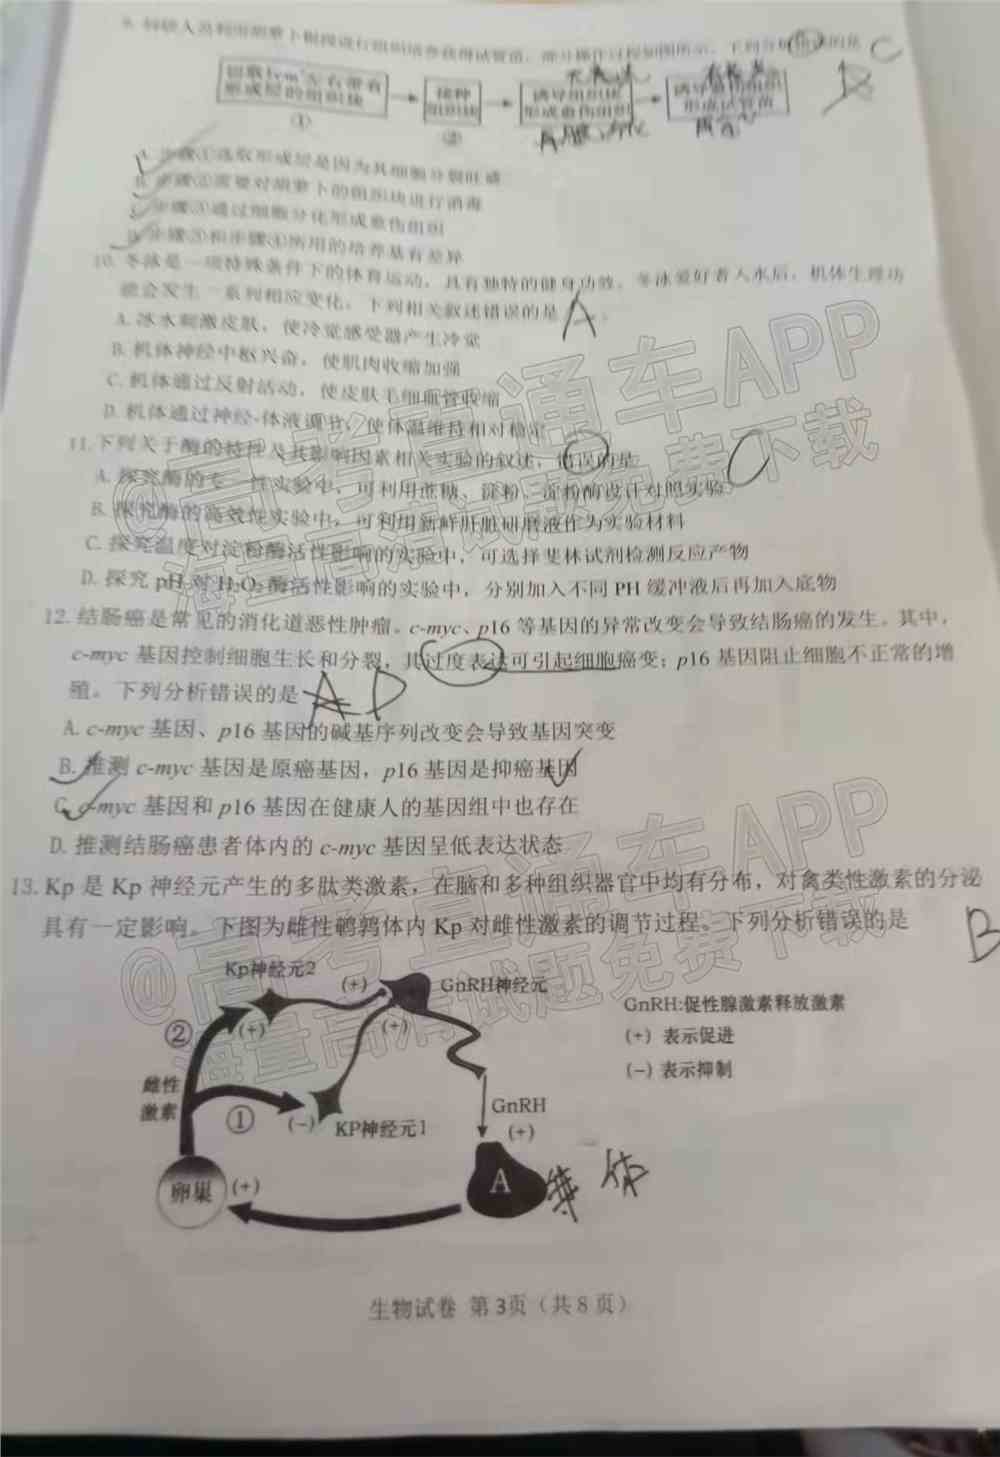 9. 科研人员利用胡萝卜根段进行组织培养获得试管苗，部分操作过程如图所示，下列分析错误的是 C
切取1cm³左右带有形成层的组织块 → 接种组织块 → 诱导组织块形成愈伤组织 → 诱导愈伤组织形成试管苗
① ②
A. 步骤①选取形成层是因为其细胞分裂旺盛
B. 步骤②需要对胡萝卜的组织块进行消毒
C. 步骤③通过细胞分化形成愈伤组织
D. 步骤③和步骤④所用的培养基有差异
10. 冬泳是一项特殊条件下的体育运动，具有独特的健身功效。冬泳爱好者入水后，机体生理功
能会发生一系列相应变化。下列相关叙述错误的是 A
A. 冰水刺激皮肤，使冷觉感受器产生冷觉
B. 机体神经中枢兴奋，使肌肉收缩加强
C. 机体通过反射活动，使皮肤毛细血管收缩
D. 机体通过神经-体液调节，使体温维持相对稳定
11. 下列关于酶的特性及其影响因素相关实验的叙述，错误的是 C
A. 探究酶的专一性实验中，可利用蔗糖、淀粉、淀粉酶设计对照实验
B. 探究酶的高效性实验中，可利用新鲜肝脏研磨液作为实验材料
C. 探究温度对淀粉酶活性影响的实验中，可选择斐林试剂检测反应产物
D. 探究 pH 对 H₂O₂ 酶活性影响的实验中，分别加入不同 PH 缓冲液后再加入底物
12. 结肠癌是常见的消化道恶性肿瘤。c-myc、p16 等基因的异常改变会导致结肠癌的发生。其中，
c-myc 基因控制细胞生长和分裂，其过度表达可引起细胞癌变；p16 基因阻止细胞不正常的增
殖。下列分析错误的是 A D
A. c-myc 基因、p16 基因的碱基序列改变会导致基因突变
B. 推测 c-myc 基因是原癌基因，p16 基因是抑癌基因
C. c-myc 基因和 p16 基因在健康人的基因组中也存在
D. 推测结肠癌患者体内的 c-myc 基因呈低表达状态
13. Kp 是 Kp 神经元产生的多肽类激素，在脑和多种组织器官中均有分布，对禽类性激素的分泌
具有一定影响。下图为雌性鹌鹑体内 Kp 对雌性激素的调节过程。下列分析错误的是 B
Kp神经元2
(+)
GnRH神经元
② (+)
(+)
GnRH:促性腺激素释放激素
(+) 表示促进
(-) 表示抑制
雌性激素
① (-)
KP神经元1
GnRH
(+)
卵巢 (+)
A 垂体
生物试卷 第3页（共8页）
@高考直通车APP
海量高清试题免费下载
@高考直通车APP
海量高清试题免费下载